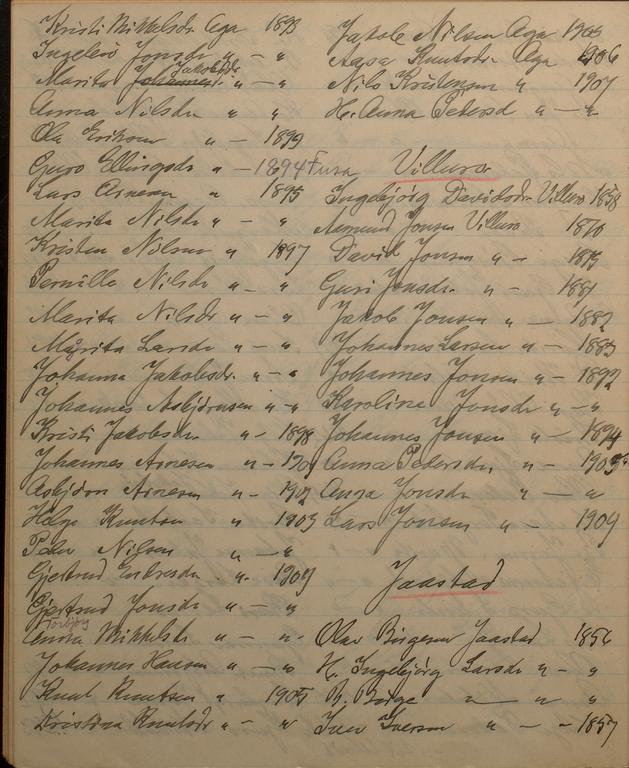 Kristi Mikkelsdr. Aga 1893
Ingeleiv Jonsdr. " — "
Marita Jakobsdr. " — "
Anna Nilsdr " "
Ola Eriksen " — 1894
Guro Ellingsdr " — 1894 Fusa
Lars Arnesen " 1895
Marita Nilsdr " - "
Kristen Nilsen " 1897
Pernille Nilsdr " - "
Marita Nilsdr " - "
Mårita Larsdr " - "
Johanna Jakobsdr. " - "
Johannes Asbjörnsen " - "
Kristi Jakobsdr. " - 1898
Johannes Arnesen " - 1901
Asbjörn Arnesen " - 1902
Helge Knutsen " 1903
Peder Nilsen " — "
Gjertrud Endresdr. " - 1904
Gjertrud Jonsdr " - "
Torbjörg
Anna Mikkelsdr " — "
Johannes Hansen " — "
Knut Knutsen " 1905
Kristina Knutsdr " - "
Jakob Nilsen Aga 1905
Aasa Knutsdr Aga 1906
Nils Kristensen " 1907
H. Anna Pedersd " — "
Villure
Ingebjörg Davidsdr. Villure 1858
Aamund Jonsen Villure 1870
David Jonsen " - 1875
Guri Jonsdr. " - 1881
Jakob Jonsen " — 1882
Johannes Larsen " — 1883
Johannes Jonsen " — 1892
Karoline Jonsdr " - "
Johannes Jonsen " - 1894
Anna Pedersdr, " - 1903
Anna Jonsdr " — "
Lars Jonsen " - 1904
Jaastad
Olav Birgesen Jaastad 1856
H. Ingebjörg Larsdr " - "
B. Birge — " "
Iver Iversen " - - 1857